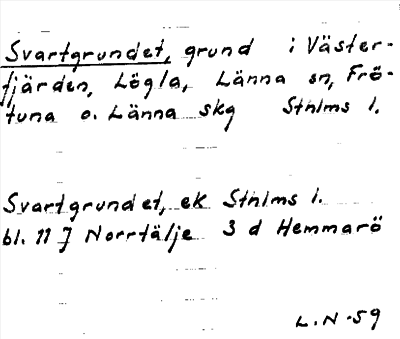 Svartgrundet, grund i Väster-
fjärden, Lögla, Länna sn, Frö-
tuna o. Länna skg Sthlms l.
Svartgrundet, ek Sthlms l.
bl. 11 J Norrtälje 3 d Hemmarö
L. N -59